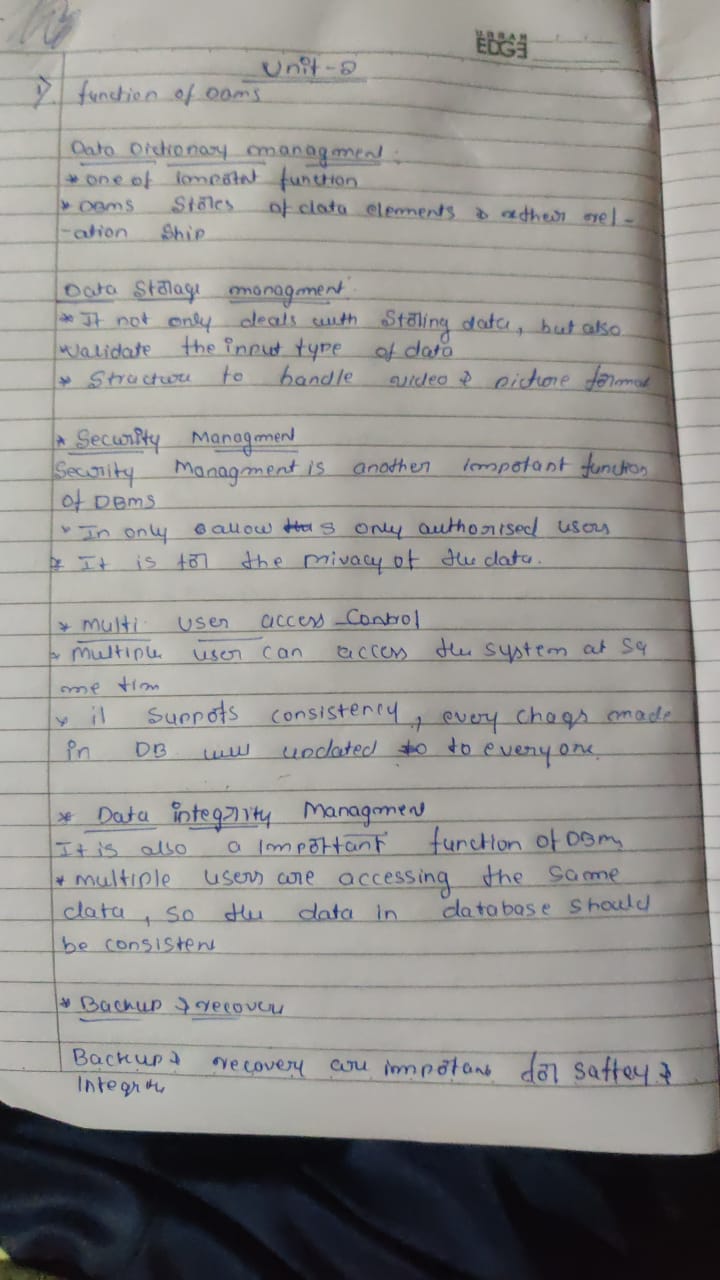 URBAN
EDGE
Unit-2
1) function of DBMS
Data Dictionary managment :
* one of impotat function
* DBMS Stores of data elements & their rel-
-ation Ship
Data Storage managment
* It not only deals with Storing data, but also
validate the input type of data
* Structure to handle video & picture format
* Security Managment
Security Managment is another impotant function
of DBMS
* In only allow only authorised users
* It is for the privacy of the data.
* multi user access Control
* multiple user can access the system at sa
me tim
* it Suppots consistency, every chags made
in DB will updated to to everyone.
* Data integrity Managmen
It is also a important function of DBMS
* multiple users are accessing the same
data, so the data in database should
be consistent
* Backup & recovery
Backup & recovery are impotant for saftey &
Integrity